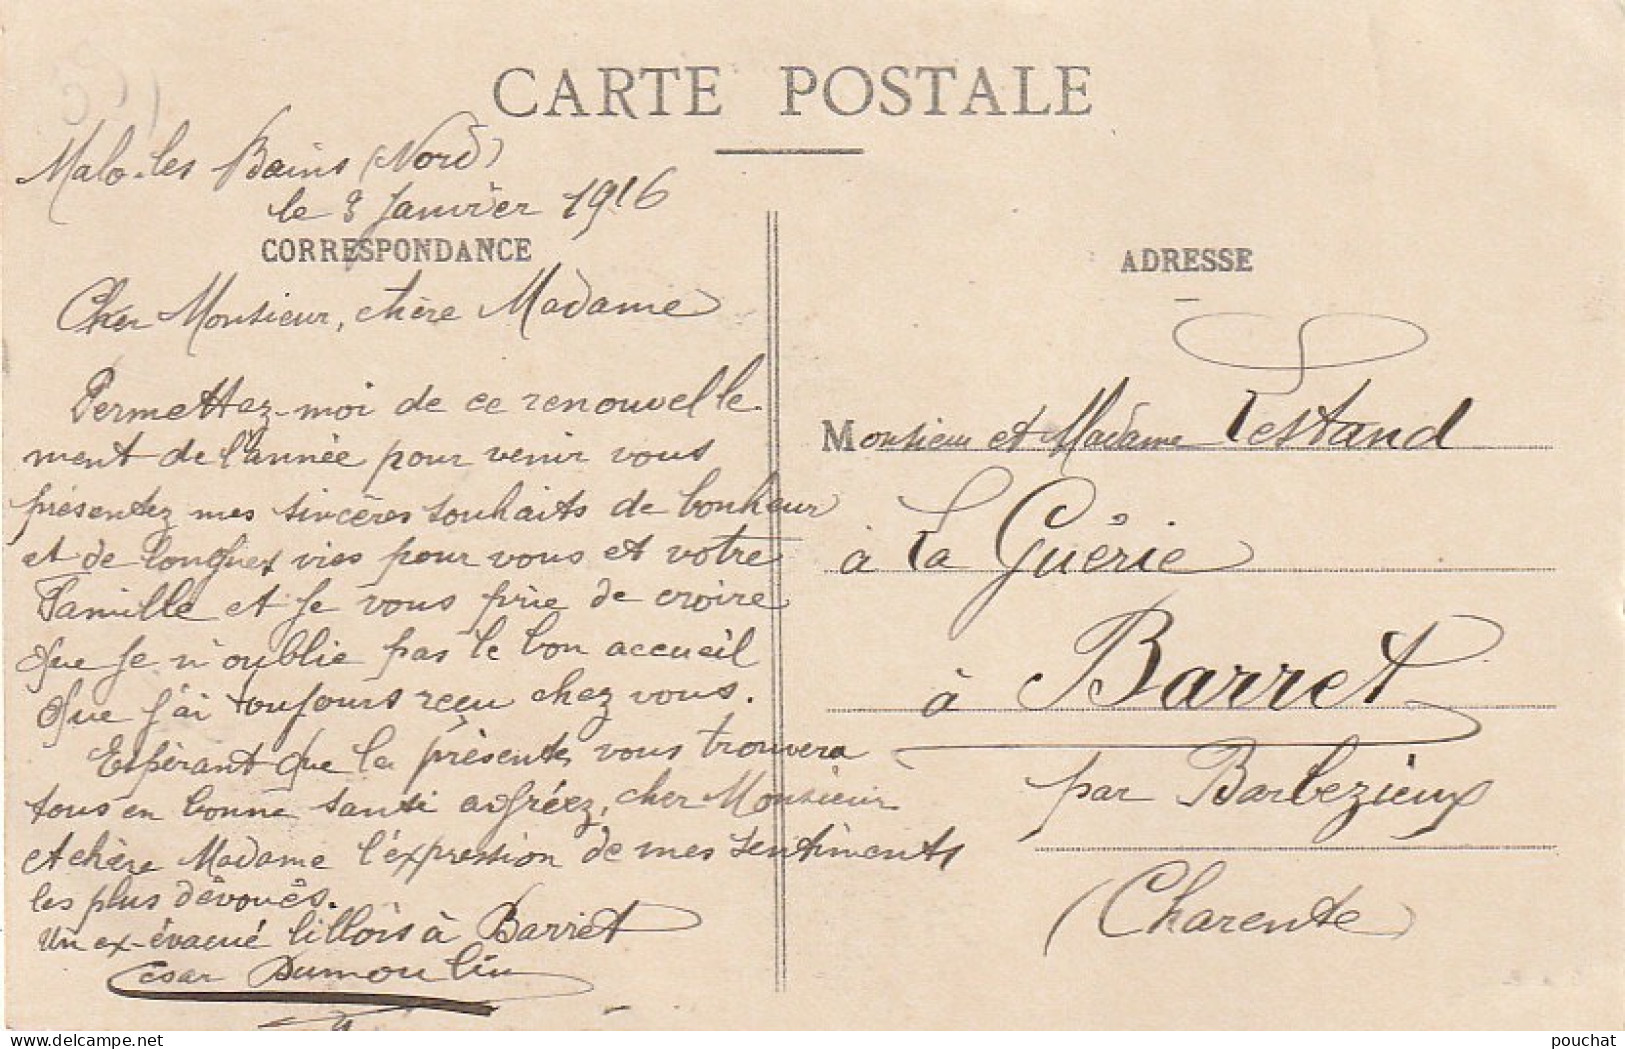 CARTE POSTALE
Malo-les Bains (Nord)
le 3 Janvier 1916
CORRESPONDANCE
Cher Monsieur, chère Madame
Permettez-moi de ce renouvelle-
ment de l'année pour venir vous
présentez mes sincères souhaits de bonheur
et de longues vies pour vous et votre
Famille et je vous prie de croire
que je n'oublie pas le bon accueil
que j'ai toujours reçu chez vous.
Espèrant que la présente vous trouvera
tous en bonne santé agréez, cher Monsieur
et chère Madame l'expression de mes sentiments
les plus dévoués.
Un ex-évacué lillois à Barret
César Dumoulin
ADRESSE
Monsieur et Madame Lestand
à La Guérie
à Barret
par Barbezieux
(Charente)
www.delcampe.net
pouchat